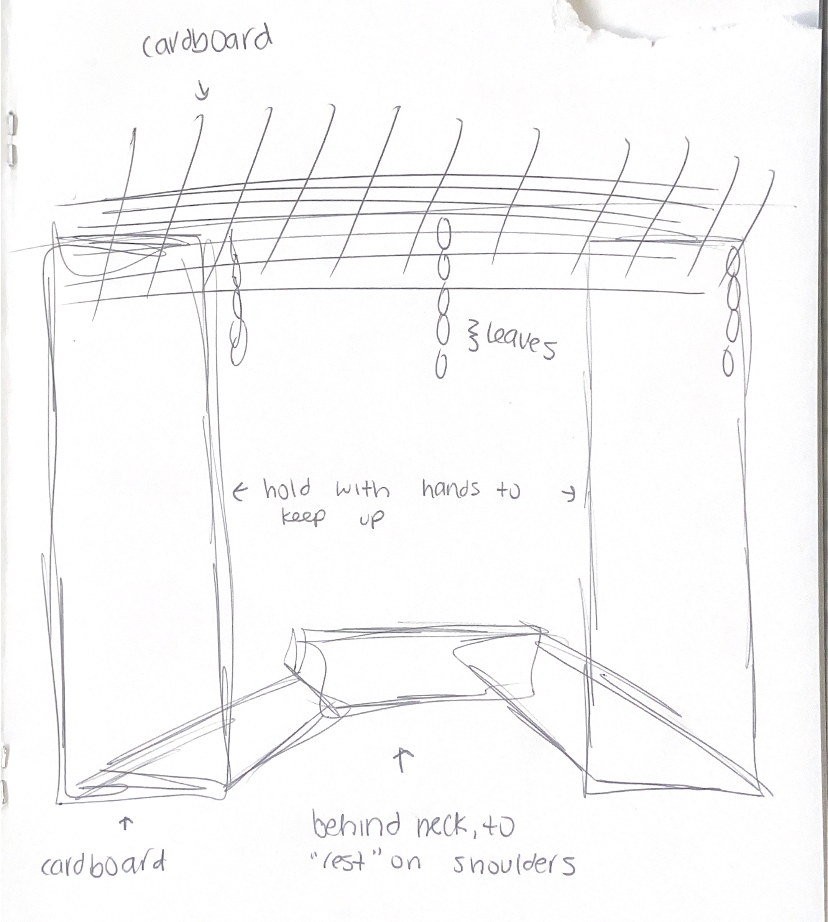 cardboard
leaves
hold with hands to
keep up
behind neck, to
"rest" on shoulders
cardboard